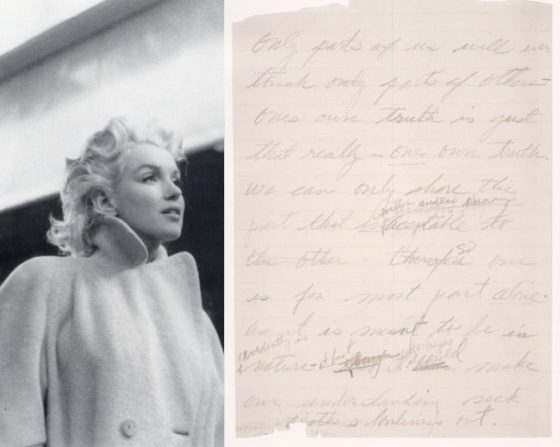 Only parts of us will ever
touch only parts of others –
ones own truth is just
that really – ones own truth.
We can only share the
within another's knowing
part that acceptable to
the other therefore So one
is for most part alone.
as it is meant to be in
evidently in
nature – at best perhaps
could make
our understanding seek
another's loneliness out.